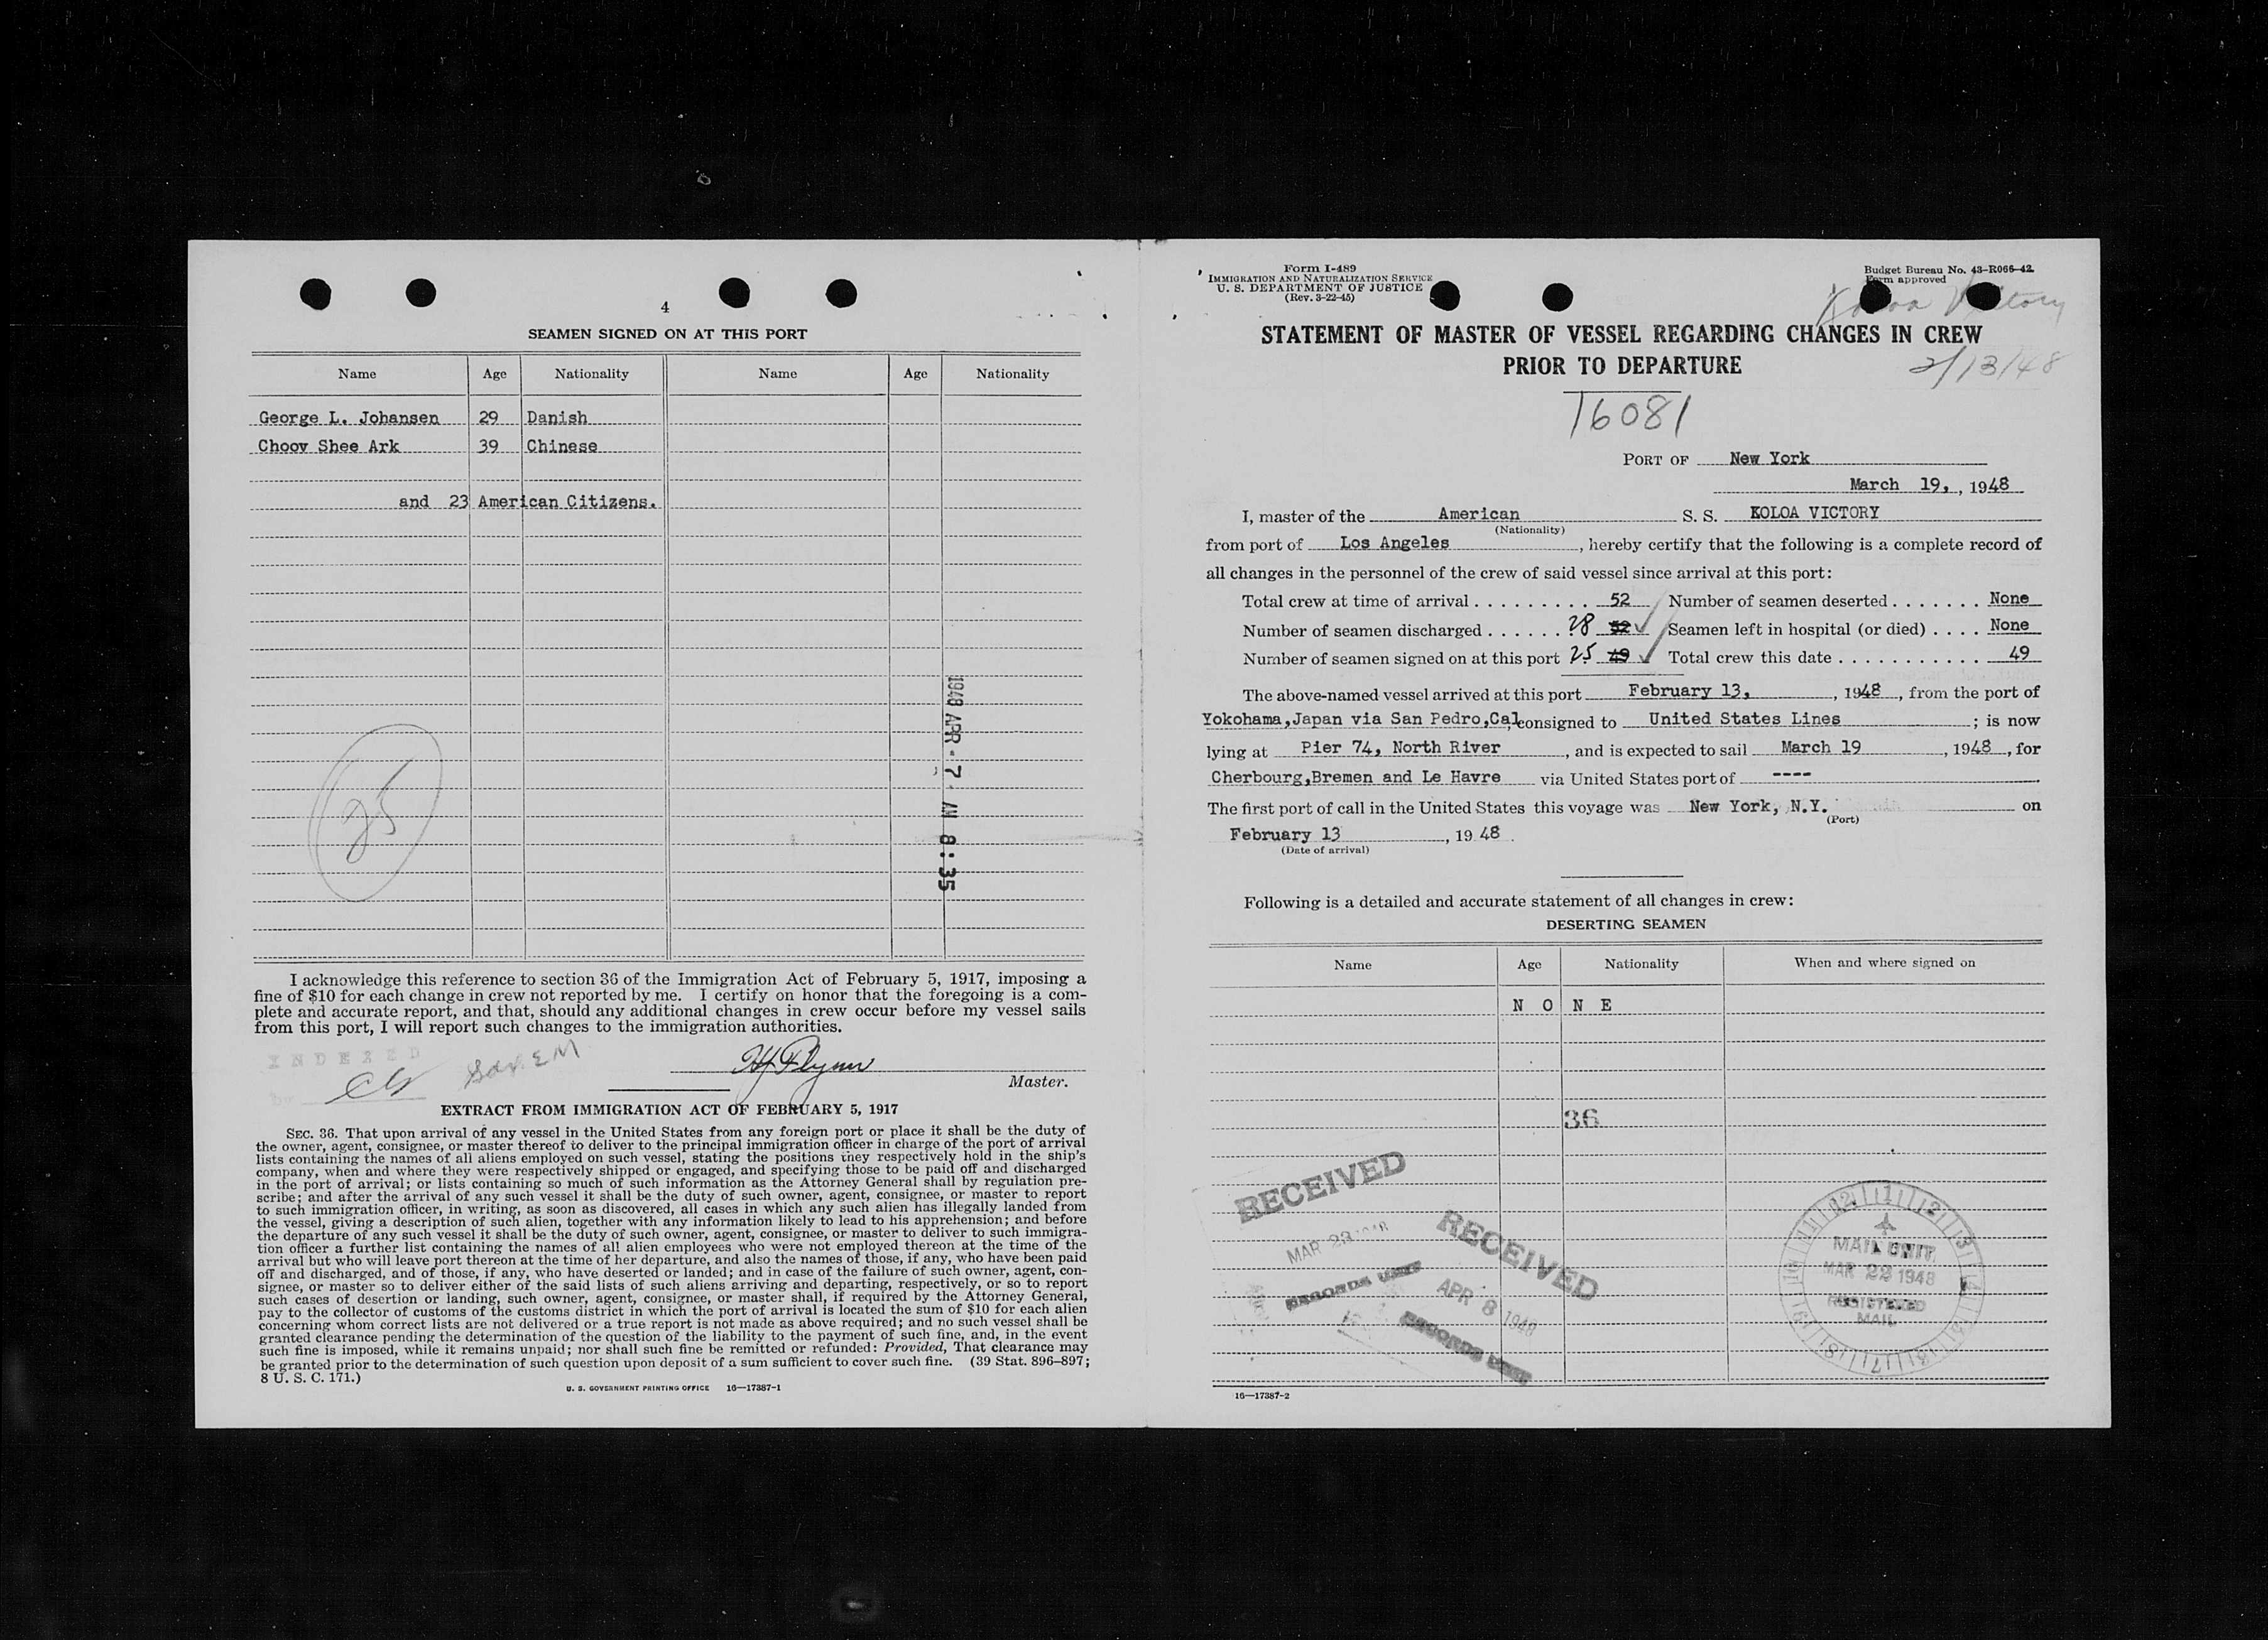 4
SEAMEN SIGNED ON AT THIS PORT
Name Age Nationality Name Age Nationality
George L. Johansen 29 Danish
Choov Shee Ark 39 Chinese
and 23 American Citizens.
1948 APR - 7 AM 8:35
25
I acknowledge this reference to section 36 of the Immigration Act of February 5, 1917, imposing a
fine of $10 for each change in crew not reported by me. I certify on honor that the foregoing is a com-
plete and accurate report, and that, should any additional changes in crew occur before my vessel sails
from this port, I will report such changes to the immigration authorities.
INDEXED
HJ Flynn
Master.
EXTRACT FROM IMMIGRATION ACT OF FEBRUARY 5, 1917
SEC. 36. That upon arrival of any vessel in the United States from any foreign port or place it shall be the duty of
the owner, agent, consignee, or master thereof to deliver to the principal immigration officer in charge of the port of arrival
lists containing the names of all aliens employed on such vessel, stating the positions they respectively hold in the ship's
company, when and where they were respectively shipped or engaged, and specifying those to be paid off and discharged
in the port of arrival; or lists containing so much of such information as the Attorney General shall by regulation pre-
scribe; and after the arrival of any such vessel it shall be the duty of such owner, agent, consignee, or master to report
to such immigration officer, in writing, as soon as discovered, all cases in which any such alien has illegally landed from
the vessel, giving a description of such alien, together with any information likely to lead to his apprehension; and before
the departure of any such vessel it shall be the duty of such owner, agent, consignee, or master to deliver to such immigra-
tion officer a further list containing the names of all alien employees who were not employed thereon at the time of the
arrival but who will leave port thereon at the time of her departure, and also the names of those, if any, who have been paid
off and discharged, and of those, if any, who have deserted or landed; and in case of the failure of such owner, agent, con-
signee, or master so to deliver either of the said lists of such aliens arriving and departing, respectively, or so to report
such cases of desertion or landing, such owner, agent, consignee, or master shall, if required by the Attorney General,
pay to the collector of customs of the customs district in which the port of arrival is located the sum of $10 for each alien
concerning whom correct lists are not delivered or a true report is not made as above required; and no such vessel shall be
granted clearance pending the determination of the question of the liability to the payment of such fine, and, in the event
such fine is imposed, while it remains unpaid; nor shall such fine be remitted or refunded: Provided, That clearance may
be granted prior to the determination of such question upon deposit of a sum sufficient to cover such fine. (39 Stat. 896-897;
8 U. S. C. 171.)
U. S. GOVERNMENT PRINTING OFFICE 16—17387-1
Form I-489
IMMIGRATION AND NATURALIZATION SERVICE
U. S. DEPARTMENT OF JUSTICE
(Rev. 3-22-45)
Budget Bureau No. 43-R066-42
Form approved
Koloa Victory
STATEMENT OF MASTER OF VESSEL REGARDING CHANGES IN CREW
PRIOR TO DEPARTURE
2/13/48
16081
PORT OF New York
March 19, , 1948
I, master of the American S. S. KOLOA VICTORY
(Nationality)
from port of Los Angeles , hereby certify that the following is a complete record of
all changes in the personnel of the crew of said vessel since arrival at this port:
Total crew at time of arrival . . . . . . . . . 52 Number of seamen deserted . . . . . . . None
Number of seamen discharged . . . . . . 28 52 Seamen left in hospital (or died) . . . . None
Number of seamen signed on at this port 25 49 Total crew this date . . . . . . . . . . . . 49
The above-named vessel arrived at this port February 13, , 1948 , from the port of
Yokohama,Japan via San Pedro,Cal consigned to United States Lines ; is now
lying at Pier 74, North River , and is expected to sail March 19 , 1948 , for
Cherbourg,Bremen and Le Havre via United States port of ----
The first port of call in the United States this voyage was New York, N.Y. on
(Port)
February 13 , 19 48 .
(Date of arrival)
Following is a detailed and accurate statement of all changes in crew:
DESERTING SEAMEN
Name Age Nationality When and where signed on
N O N E
36
RECEIVED
MAR 23 1948
RECORDS UNIT
RECEIVED
APR 8 1948
RECORDS UNIT
MAIL UNIT
MAR 22 1948
REGISTERED
MAIL
16—17387-2